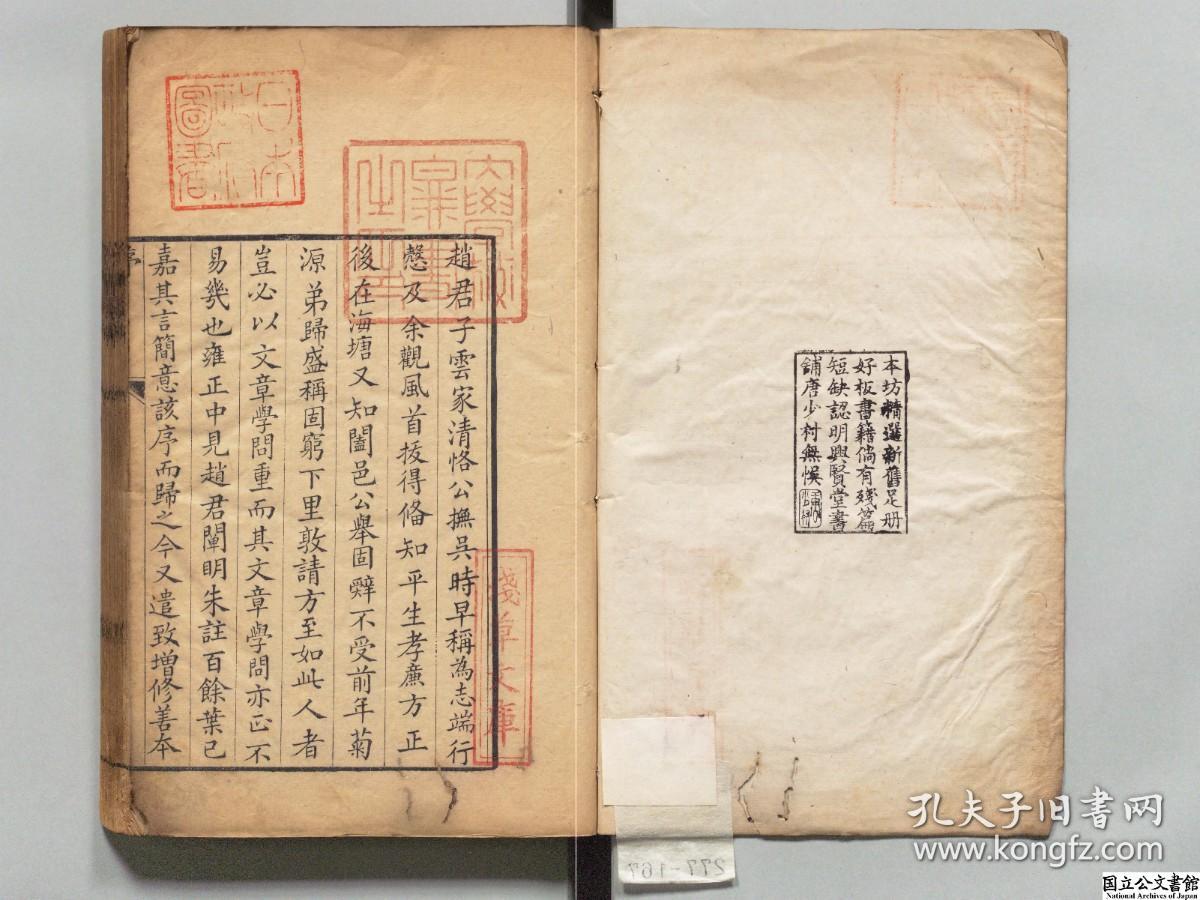 本坊精選新舊足册
好板書籍倘有殘篇
短缺認明興賢堂書
舖唐少村無悞
趙君子雲家清恪公撫吳時早稱為志端行
慤及余觀風首拔得俻知平生孝廉方正
後在海塘又知闔邑公舉固辭不受前年菊
源弟歸盛稱固窮下里敦請方至如此人者
豈必以文章學問重而其文章學問亦正不
易幾也雍正中見趙君闡明朱註百餘葉已
嘉其言簡意該序而歸之今又遣致增修善本
序
日本
政府
圖書
淺草文庫
277-167
孔夫子旧书网
www.kongfz.com
国立公文書館
National Archives of Japan